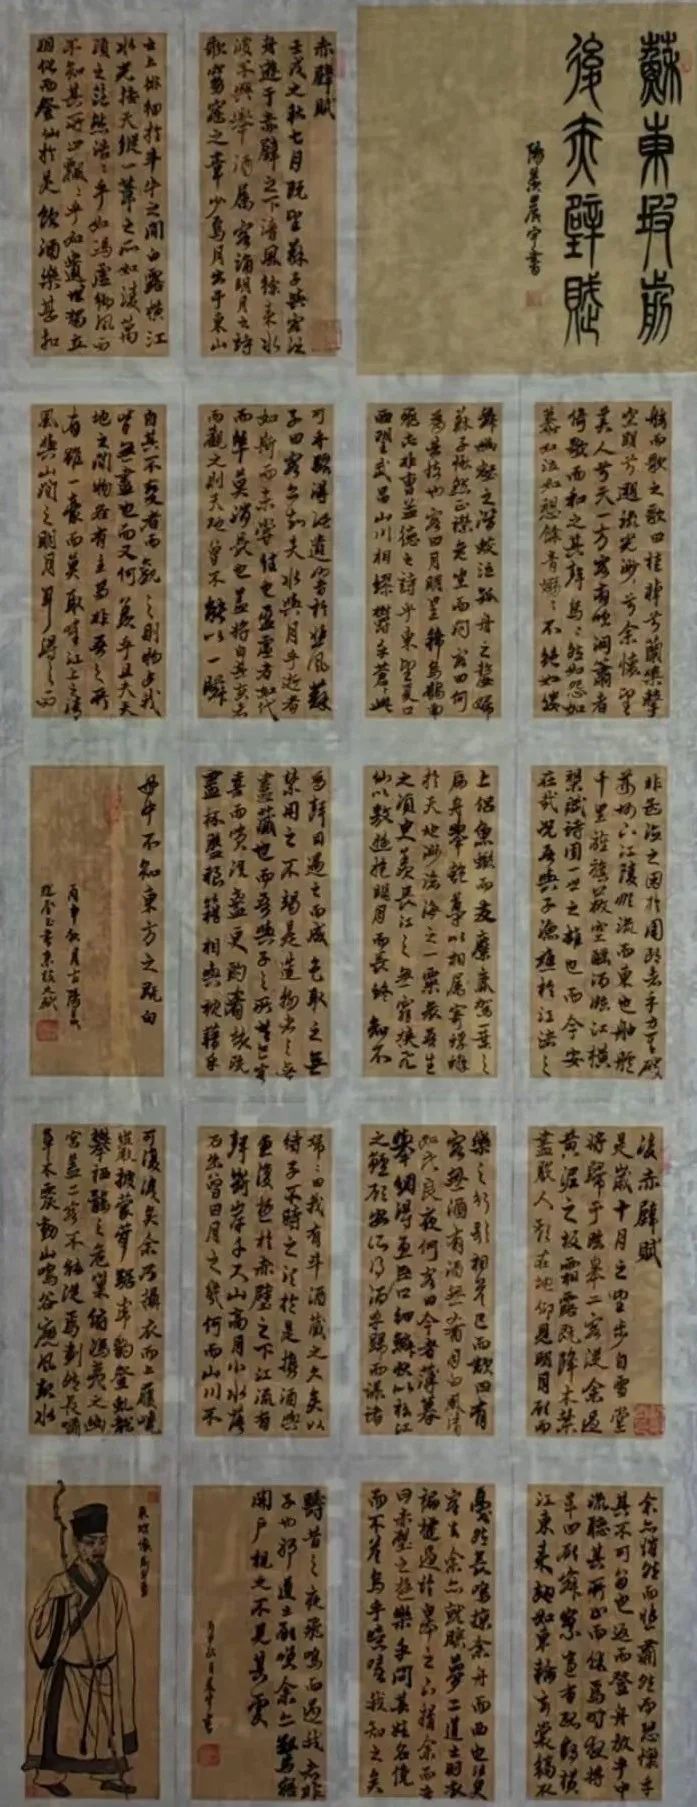 蘇東坡前
後赤壁賦
赤壁賦
壬戌之秋七月既望蘇子與客泛
舟遊于赤壁之下清風徐來水
波不興舉酒屬客誦明月之詩
歌窈窕之章少焉月出于東山
之上徘徊於斗牛之間白露橫江
水光接天縱一葦之所如淩萬
頃之茫然浩浩乎如馮虛御風而
不知其所止飄飄乎如遺世獨立
羽化而登仙於是飲酒樂甚扣
舷而歌之歌曰桂棹兮蘭槳擊
空明兮遡流光渺渺兮余懷望
美人兮天一方客有吹洞簫者
倚歌而和之其聲嗚嗚然如怨如
慕如泣如訴餘音嫋嫋不絕如縷
舞幽壑之潛蛟泣孤舟之嫠婦
蘇子愀然正襟危坐而問客曰何
為其然也客曰月明星稀烏鵲南
飛此非曹孟德之詩乎東望夏口
西望武昌山川相繆鬱乎蒼蒼此
非孟德之困於周郎者乎方其破
荊州下江陵順流而東也舳艫
千里旌旗蔽空釃酒臨江橫
槊賦詩固一世之雄也而今安
在哉況吾與子漁樵於江渚之
上侶魚鰕而友麋鹿駕一葉之
扁舟舉匏尊以相屬寄蜉蝣
於天地渺滄海之一粟哀吾生
之須臾羨長江之無窮挾飛
仙以遨遊抱明月而長終知不
可乎驟得託遺響於悲風蘇
子曰客亦知夫水與月乎逝者
如斯而未嘗往也盈虛者如代
而卒莫消長也蓋將自其變者
而觀之則天地曾不能以一瞬
自其不變者而觀之則物與我
皆無盡也而又何羨乎且夫天
地之間物各有主苟非吾之所
有雖一毫而莫取惟江上之清
風與山間之明月耳得之而
為聲目遇之而成色取之無
禁用之不竭是造物者之無
盡藏也而吾與子之所共客
喜而笑洗盞更酌肴核既
盡杯盤狼籍相與枕藉乎
舟中不知東方之既白
丙申秋月
後赤壁賦
是歲十月之望步自雪堂
將歸于臨皋二客從余過
黃泥之坂霜露既降木葉
盡脫人影在地仰見明月顧而
樂之行歌相答已而歎曰有
客無酒有酒無肴月白風清
如此良夜何客曰今者薄暮
舉網得魚巨口細鱗狀似松江
之鱸顧安所得酒乎歸而謀諸
婦婦曰我有斗酒藏之久矣以
待子不時之須於是攜酒與
魚復遊於赤壁之下江流有
聲斷岸千尺山高月小水落
石出曾日月之幾何而江山不
可復識矣余乃攝衣而上履巉
巖披蒙茸踞虎豹登虬龍
攀栖鶻之危巢俯馮夷之幽
宮蓋二客不能從焉劃然長嘯
草木震動山鳴谷應風起水
余亦悄然而悲肅然而恐懍乎
其不可留也返而登舟放乎中
流聽其所止而休焉時夜將
半四顧寂寥適有孤鶴橫
江東來翅如車輪玄裳縞衣
戛然長鳴掠余舟而西也須臾
客去余亦就睡夢二道士羽衣
蹁躚過臨皋之下揖余而言
曰赤壁之遊樂乎問其姓名俛
而不答嗚乎噫嘻我知之矣
疇昔之夜飛鳴而過我者非
子也耶道士顧笑余亦驚寤
開戶視之不見其處